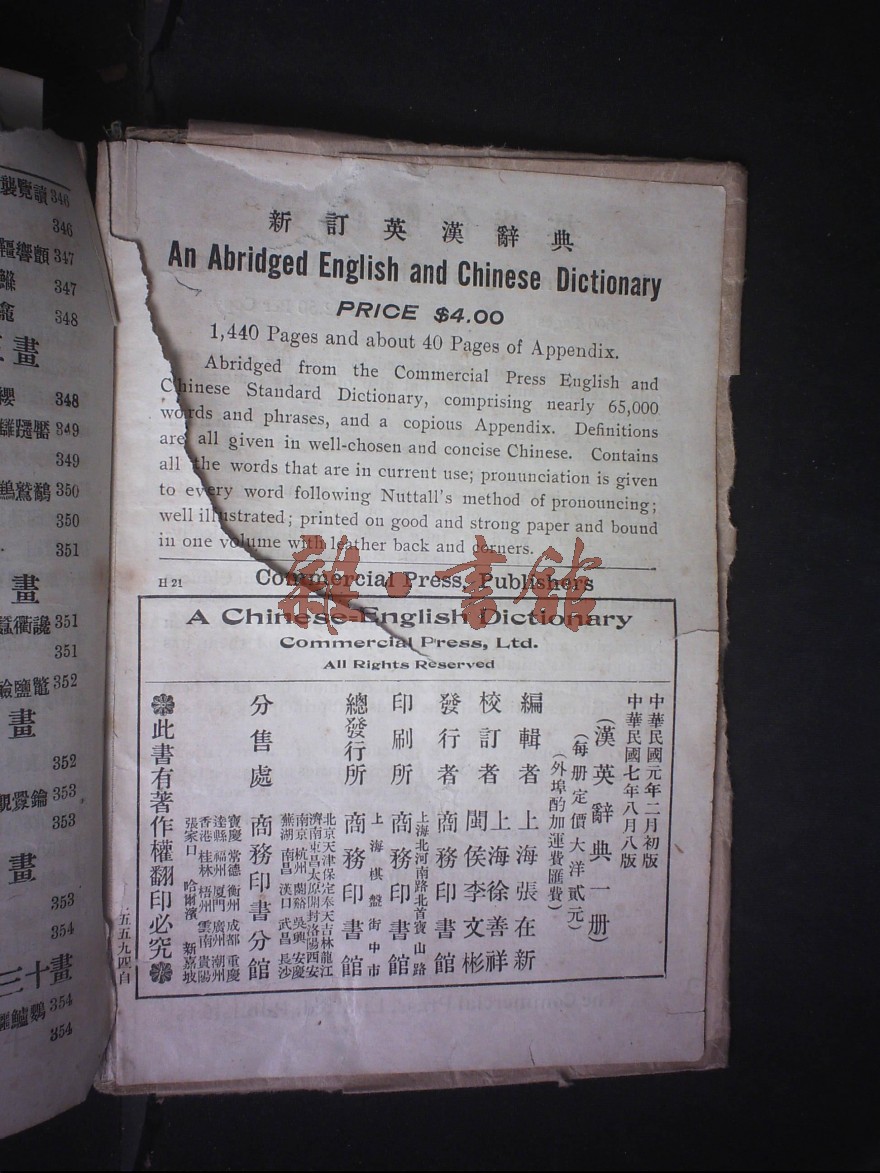 襲覽讀 346
346
響顫 347
347
龕 348
畫
纓 348
349
349
鷲鷸 350
350
351
畫
衢讒 351
351
鹽 352
畫
352
353
353
畫
353
354
三十畫
鱸鸚 354
354
新訂英漢辭典
An Abridged English and Chinese Dictionary
PRICE $4.00
1,440 Pages and about 40 Pages of Appendix.
Abridged from the Commercial Press English and
Chinese Standard Dictionary, comprising nearly 65,000
words and phrases, and a copious Appendix. Definitions
are all given in well-chosen and concise Chinese. Contains
all the words that are in current use; pronunciation is given
to every word following Nuttall's method of pronouncing;
well illustrated; printed on good and strong paper and bound
in one volume with leather back and corners.
H 21 Commercial Press, Publishers
雜·書館
A Chinese-English Dictionary
Commercial Press, Ltd.
All Rights Reserved
中華民國元年二月初版
中華民國七年八月八版
(漢英辭典一册)
(每册定價大洋貳元)
(外埠酌加運費匯費)
編輯者 上海張在新
校訂者 上海徐善祥
閩侯李文彬
發行者 商務印書館
印刷所 上海北河南路北首寶山路
商務印書館
總發行所 上海棋盤街中市
商務印書館
分售處 北京天津保定奉天吉林龍江
濟南東昌太原開封洛陽西安
南京杭州蘭谿吳興安慶
蕪湖南昌漢口武昌長沙
商務印書分館
寶慶常德衡州成都重慶
達縣福州厦門廣州潮州
香港桂林梧州雲南貴陽
張家口哈爾濱新嘉坡
此書有著作權翻印必究
一五五九四自